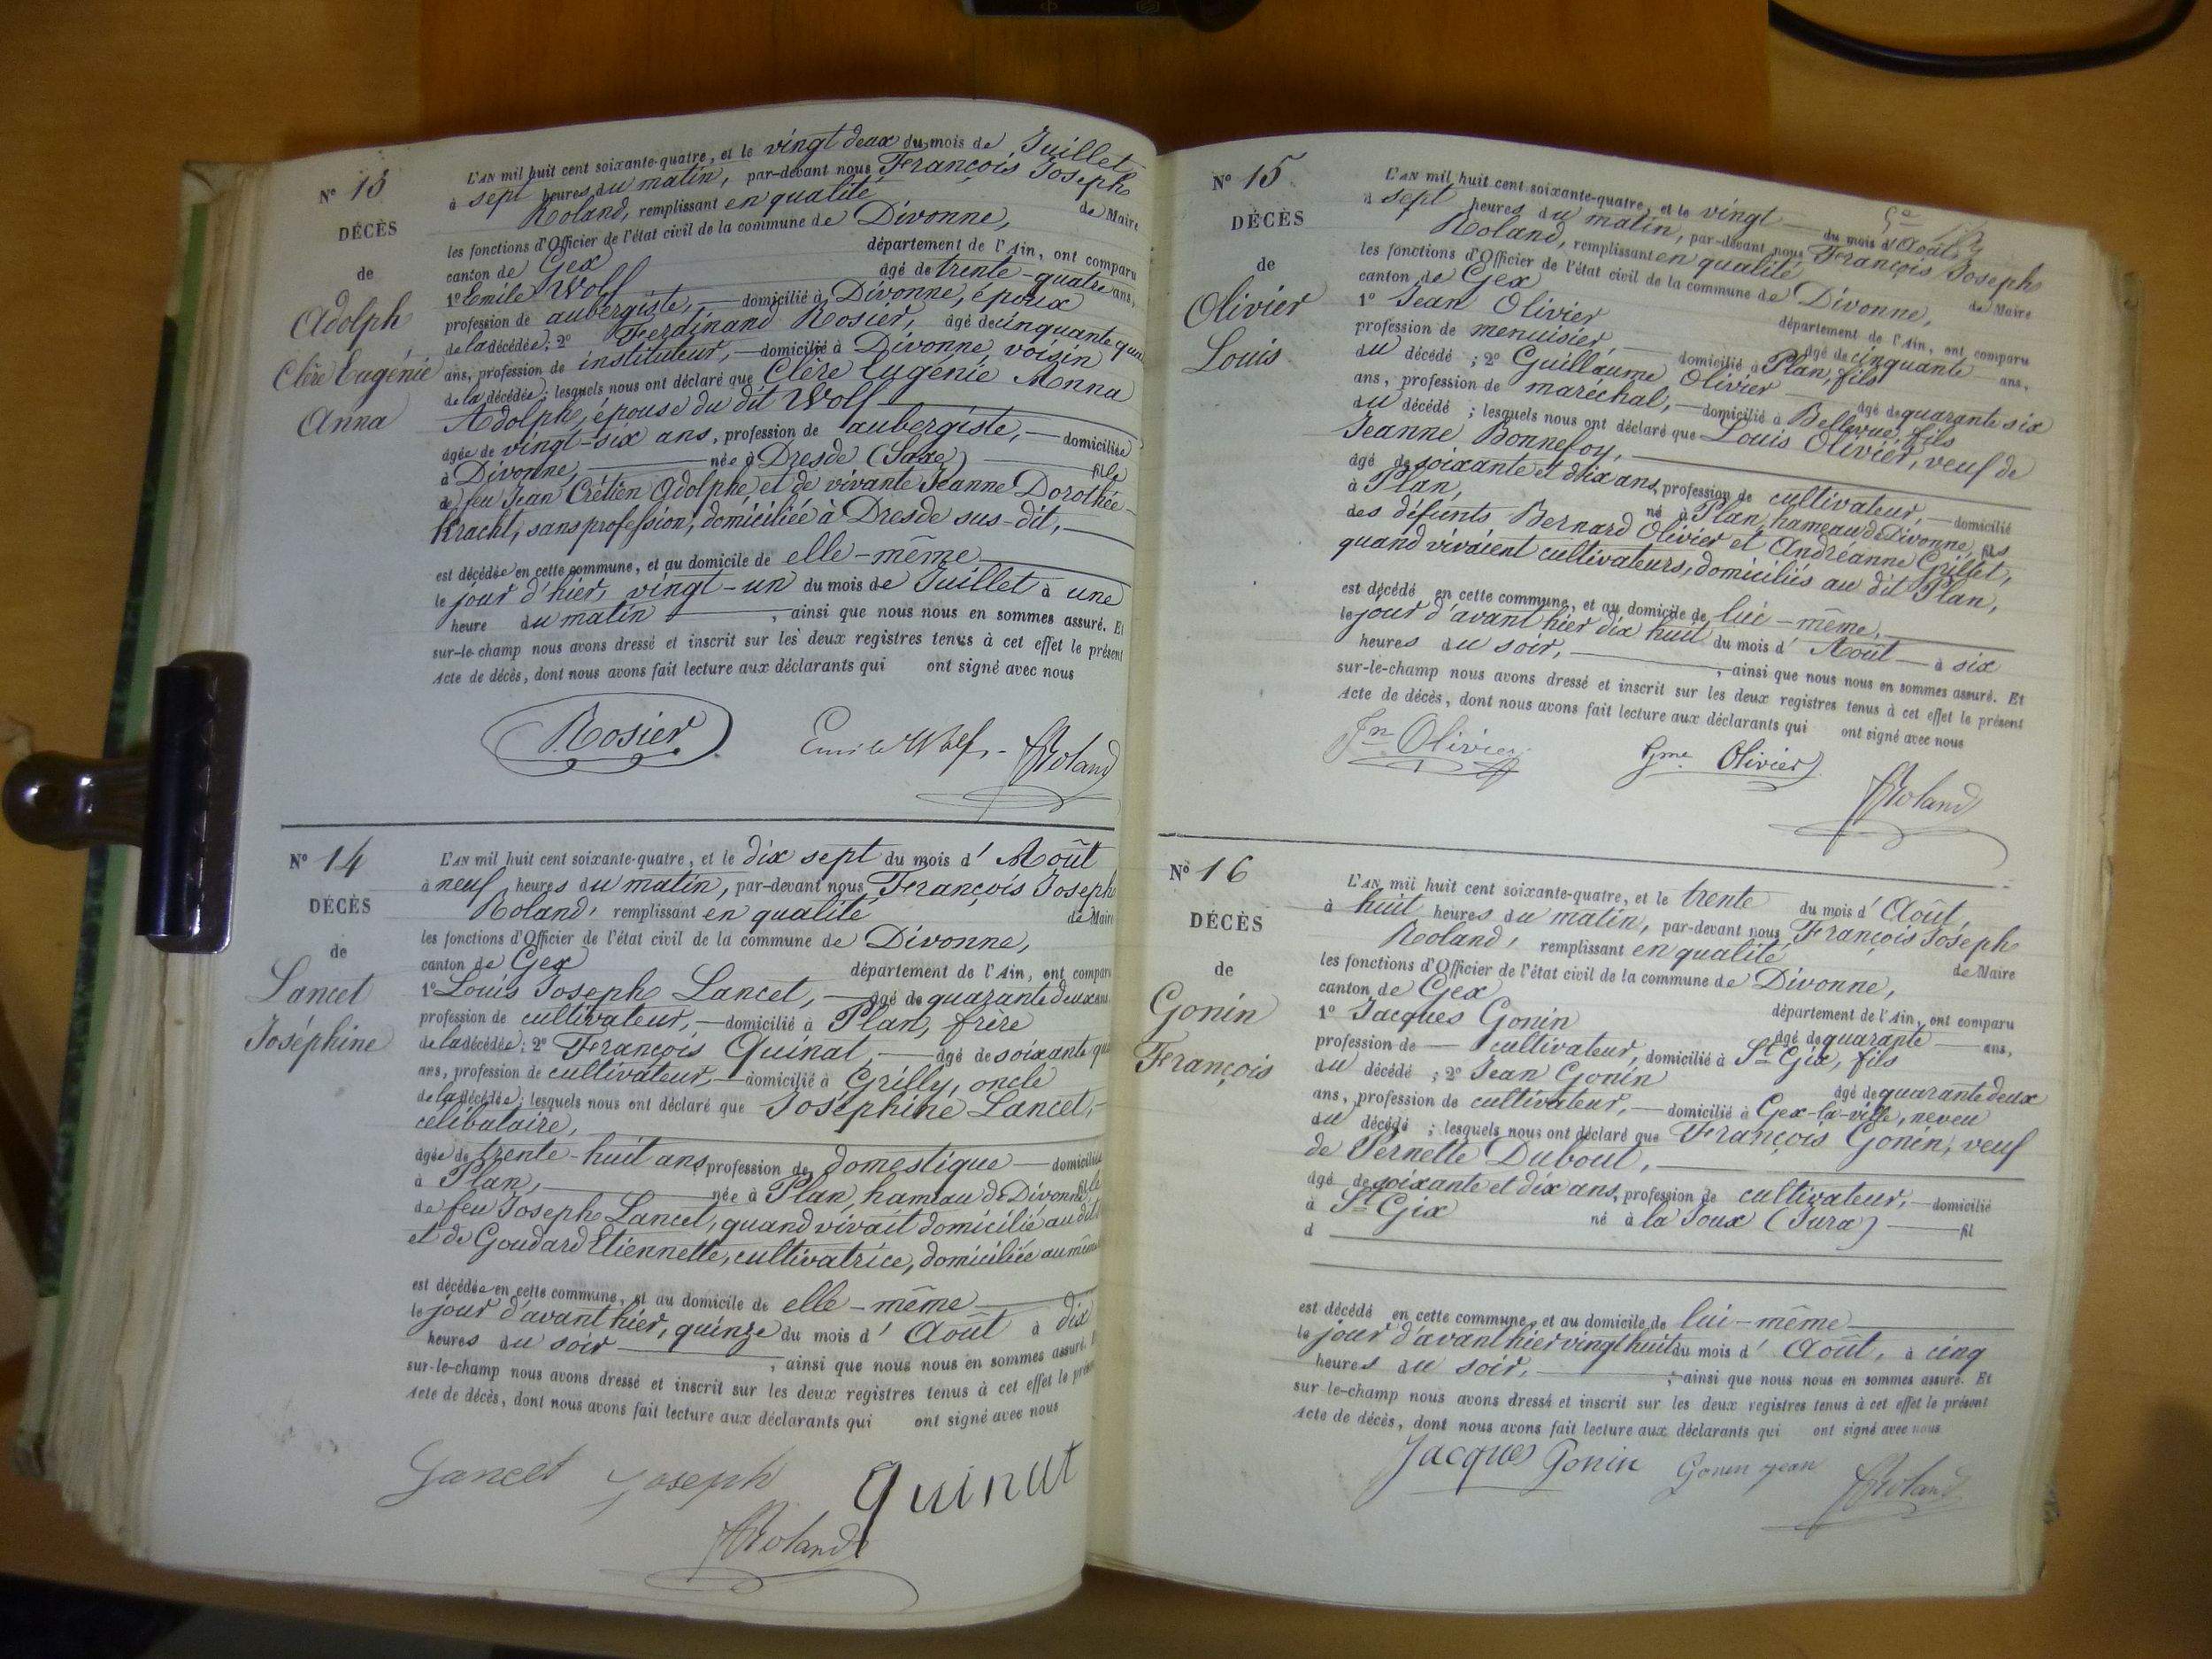 N° 13
DÉCÈS
de
Adolph
Clère Eugénie
Anna
L'AN mil huit cent soixante-quatre, et le vingt deux du mois de Juillet
à sept heures du matin, par-devant nous François Joseph
Roland, remplissant en qualité de Maire
les fonctions d'Officier de l'état civil de la commune de Divonne,
canton de Gex département de l'Ain, ont comparu
1° Emile Wolf âgé de trente-quatre ans,
profession de aubergiste, domicilié à Divonne, époux
de la décédée; 2° Ferdinand Rosier, âgé de cinquante
ans, profession de instituteur, domicilié à Divonne, voisin
de la décédée; lesquels nous ont déclaré que Clère Eugénie Anna
Adolph, épouse du dit Wolf
âgée de vingt-six ans, profession de aubergiste, domiciliée
à Divonne, née à Dresde (Saxe) fille
de feu Jean Crétien Adolphe, et de vivante Jeanne Dorothée
Kracht, sans profession, domiciliée à Dresde sus-dit,
est décédée en cette commune, et au domicile de elle-même
le jour d'hier, vingt-un du mois de Juillet à une
heure du matin, ainsi que nous nous en sommes assuré. Et
sur-le-champ nous avons dressé et inscrit sur les deux registres tenus à cet effet le présent
Acte de décès, dont nous avons fait lecture aux déclarants qui ont signé avec nous
Rosier Emile Wolf Roland
N° 14
DÉCÈS
de
Lancet
Joséphine
L'AN mil huit cent soixante-quatre, et le dix sept du mois d'Août
à neuf heures du matin, par-devant nous François Joseph
Roland, remplissant en qualité de Maire
les fonctions d'Officier de l'état civil de la commune de Divonne,
canton de Gex département de l'Ain, ont comparu
1° Louis Joseph Lancet, âgé de quarante deux ans,
profession de cultivateur, domicilié à Plan, frère
de la décédée; 2° François Quinat, âgé de soixante
ans, profession de cultivateur, domicilié à Grilly, oncle
de la décédée; lesquels nous ont déclaré que Joséphine Lancet,
célibataire,
âgée de trente-huit ans, profession de domestique domiciliée
à Plan, née à Plan, hameau de Divonne, fille
de feu Joseph Lancet, quand vivait domicilié au dit
et de Goudard Etiennette, cultivatrice, domiciliée au même
est décédée en cette commune, et au domicile de elle-même
le jour d'avant hier, quinze du mois d'Août à dix
heures du soir, ainsi que nous nous en sommes assuré. Et
sur-le-champ nous avons dressé et inscrit sur les deux registres tenus à cet effet le présent
Acte de décès, dont nous avons fait lecture aux déclarants qui ont signé avec nous
Lancet Joseph Quinat
Roland
N° 15
DÉCÈS
de
Olivier
Louis
L'AN mil huit cent soixante-quatre, et le vingt du mois d'Août,
à sept heures du matin, par-devant nous François Joseph
Roland, remplissant en qualité de Maire
les fonctions d'Officier de l'état civil de la commune de Divonne,
canton de Gex département de l'Ain, ont comparu
1° Jean Olivier âgé de cinquante ans,
profession de menuisier, domicilié à Plan, fils
du décédé; 2° Guillaume Olivier âgé de quarante six
ans, profession de maréchal, domicilié à Bellevue, fils
du décédé; lesquels nous ont déclaré que Louis Olivier, veuf de
Jeanne Bonnefoy,
âgé de soixante et dix ans, profession de cultivateur, domicilié
à Plan, né à Plan, hameau de Divonne, fils
des défunts Bernard Olivier et Andréanne Grillet,
quand vivaient cultivateurs, domiciliés au dit Plan,
est décédé en cette commune, et au domicile de lui-même,
le jour d'avant hier dix huit du mois d'Août à six
heures du soir, ainsi que nous nous en sommes assuré. Et
sur-le-champ nous avons dressé et inscrit sur les deux registres tenus à cet effet le présent
Acte de décès, dont nous avons fait lecture aux déclarants qui ont signé avec nous
Jn Olivier Gme Olivier
Roland
N° 16
DÉCÈS
de
Gonin
François
L'AN mil huit cent soixante-quatre, et le trente du mois d'Août,
à huit heures du matin, par-devant nous François Joseph
Roland, remplissant en qualité de Maire
les fonctions d'Officier de l'état civil de la commune de Divonne,
canton de Gex département de l'Ain, ont comparu
1° Jacques Gonin âgé de quarante ans,
profession de cultivateur, domicilié à St Gix, fils
du décédé; 2° Jean Gonin âgé de quarante deux
ans, profession de cultivateur, domicilié à Gex-la-ville, neveu
du décédé; lesquels nous ont déclaré que François Gonin, veuf
de Pernette Dubout,
âgé de soixante et dix ans, profession de cultivateur, domicilié
à St Gix né à la Joux (Jura) fil
d
est décédé en cette commune, et au domicile de lui-même
le jour d'avant hier vingt huit du mois d'Août, à cinq
heures du soir, ainsi que nous nous en sommes assuré. Et
sur-le-champ nous avons dressé et inscrit sur les deux registres tenus à cet effet le présent
Acte de décès, dont nous avons fait lecture aux déclarants qui ont signé avec nous
Jacques Gonin Gonin Jean Roland